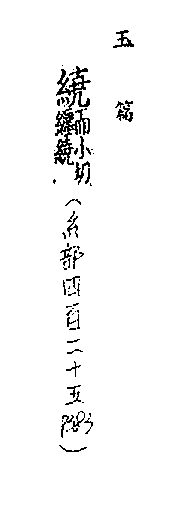 玉篇
繞 而小切纏繞（糸部四百二十五）